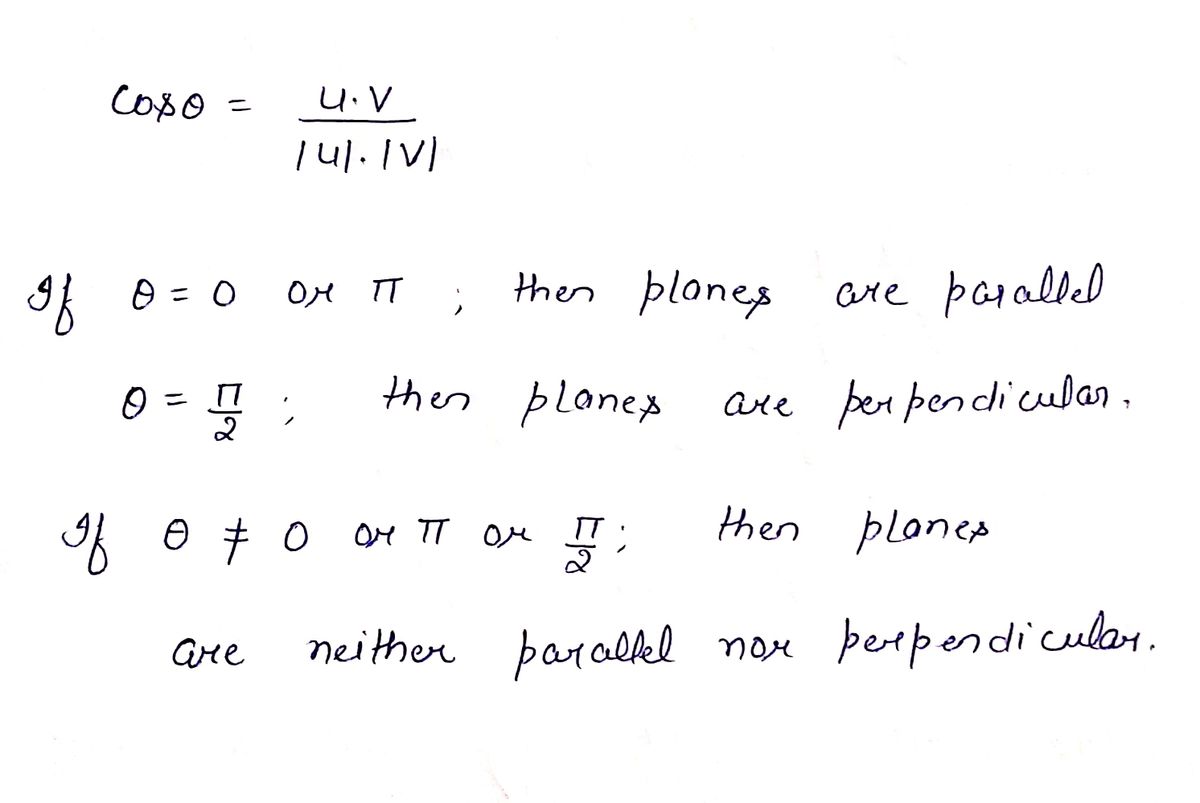 Cosθ = u.v
|u|.|v|
If θ = 0 or π ; then planes are parallel
θ = π/2 ; then planes are perpendicular.
If θ ≠ 0 or π or π/2 ; then planes
are neither parallel nor perpendicular.